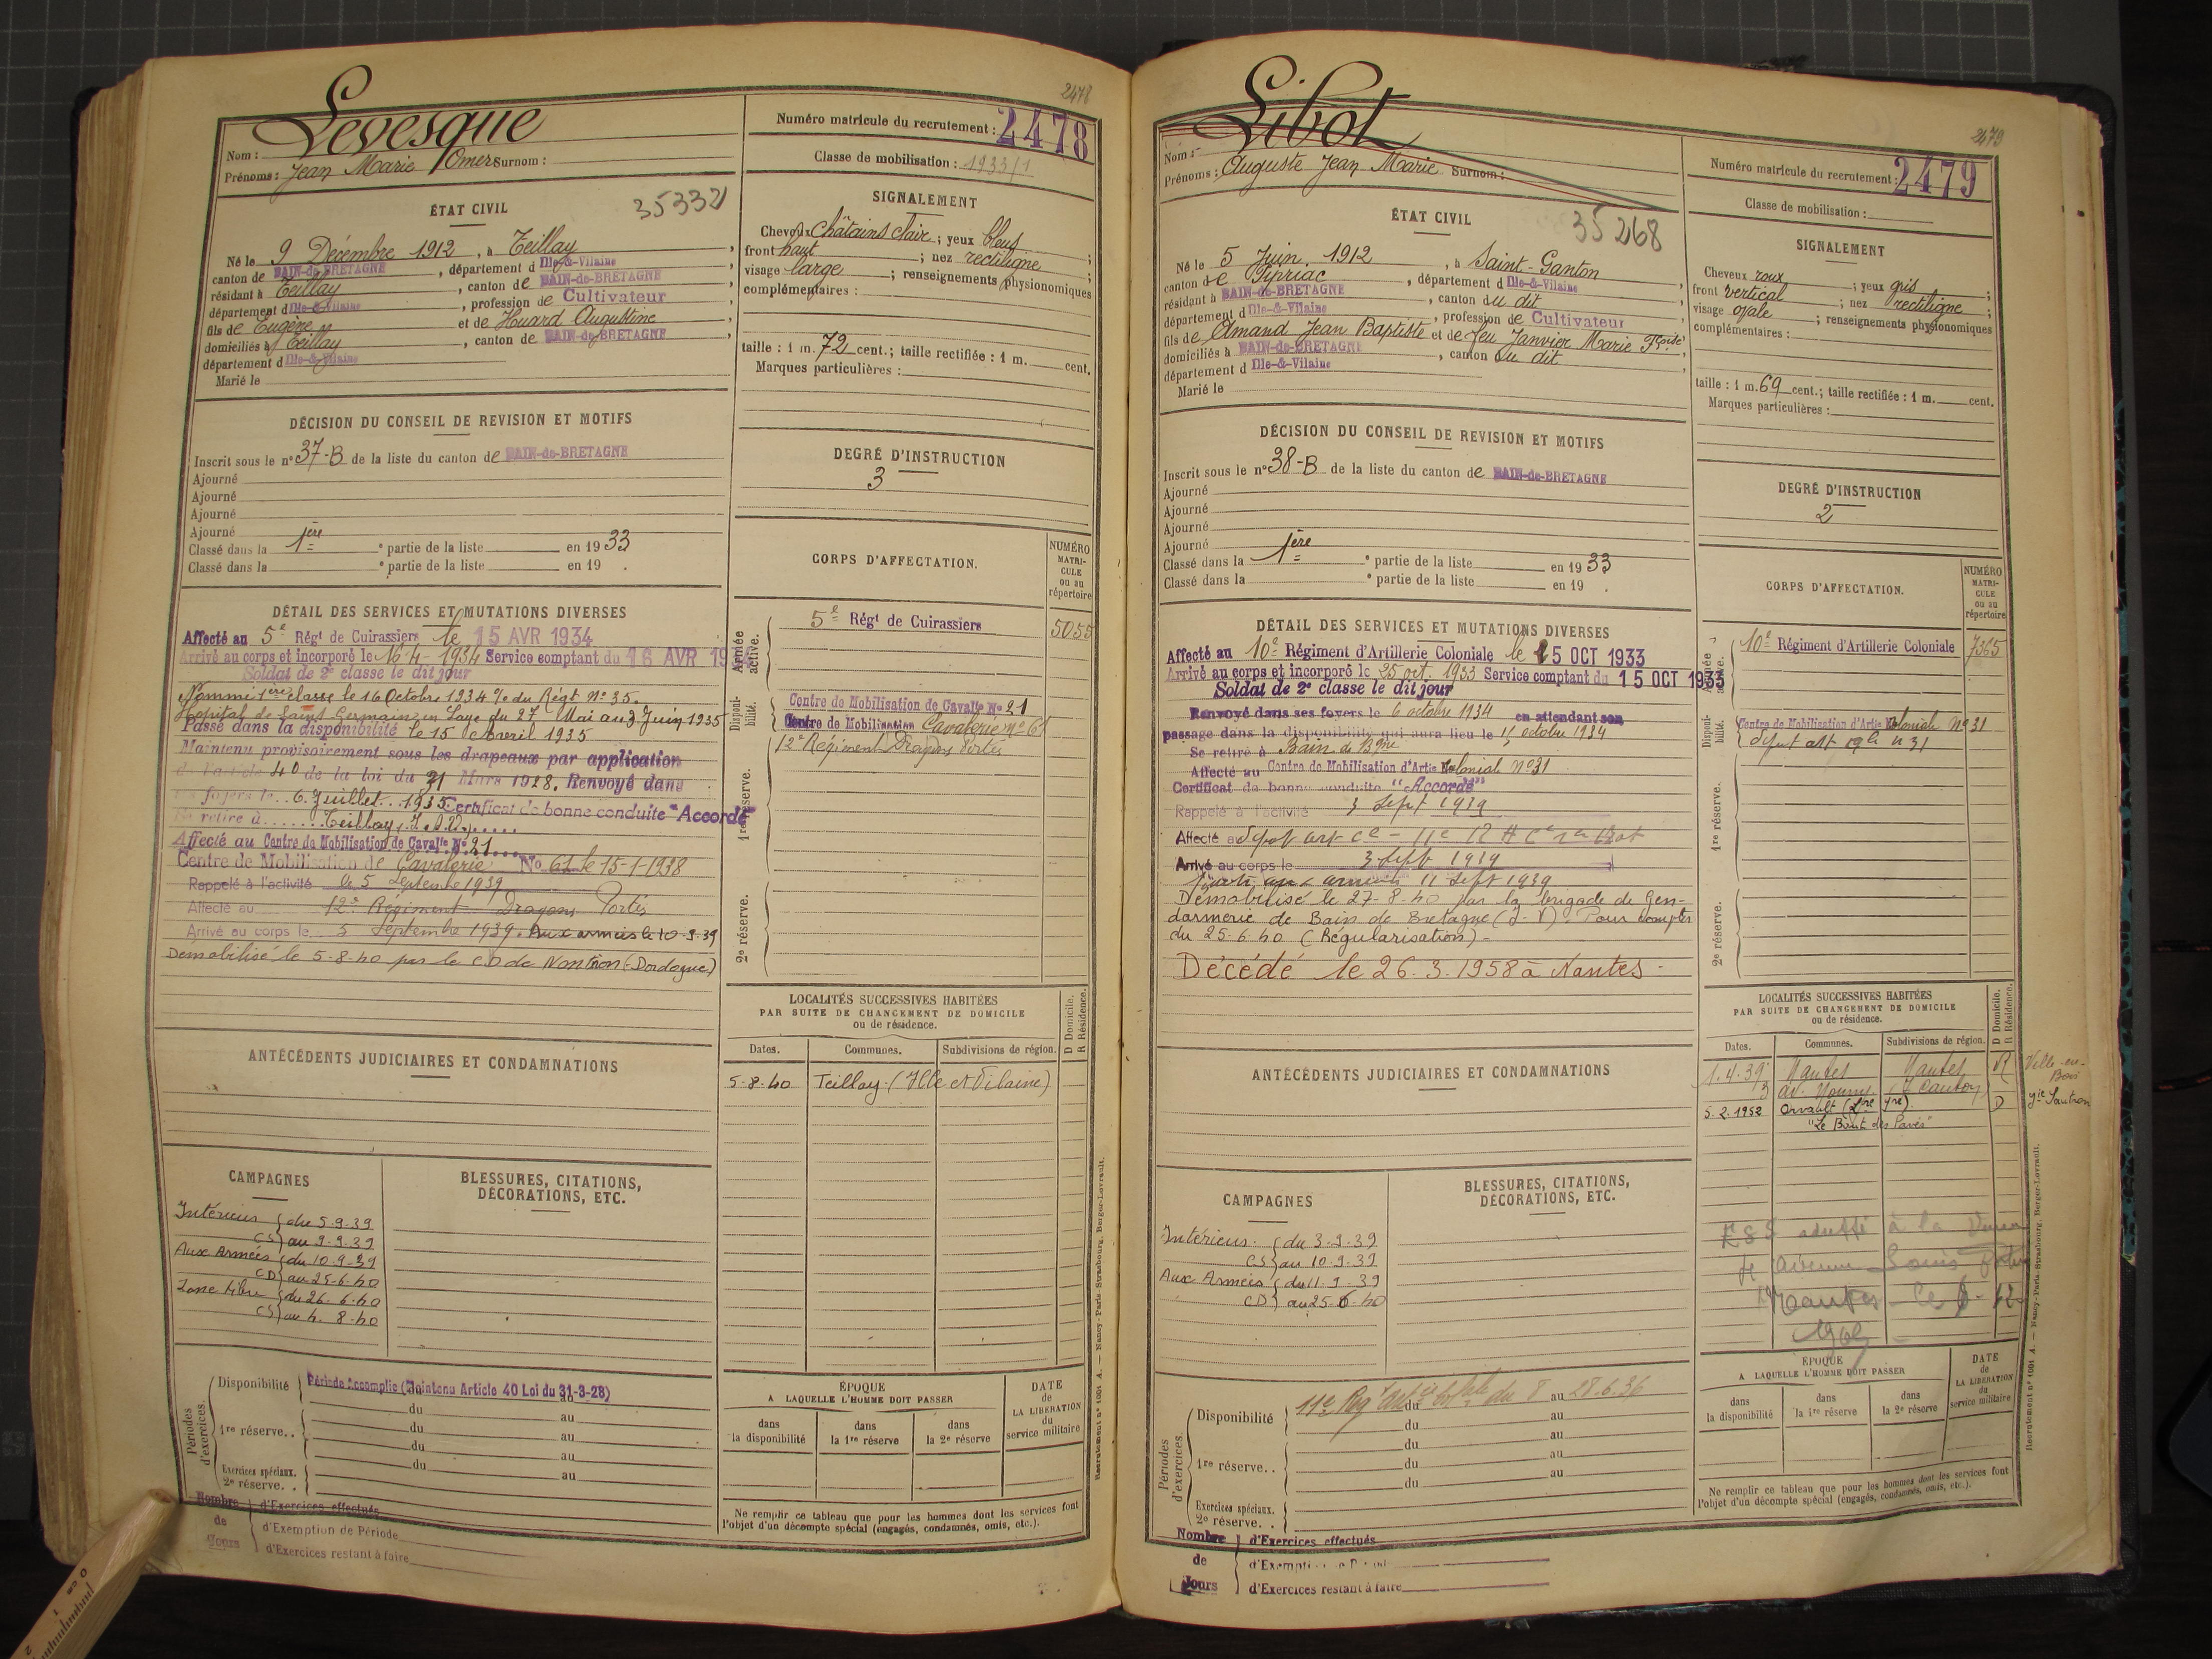 2478
Levesque
Nom :
Prénoms : Jean Marie Omer Surnom :
Numéro matricule du recrutement : 2478
Classe de mobilisation : 1933/1
ÉTAT CIVIL
35332
Né le 9 Décembre 1912, à Teillay,
canton de BAIN-de-BRETAGNE, département d Ille-&-Vilaine
résidant à Teillay, canton de BAIN-de-BRETAGNE,
département d Ille-&-Vilaine, profession de Cultivateur
fils de Eugène et de Huard Augustine,
domiciliés à Teillay, canton de BAIN-de-BRETAGNE,
département d Ille-&-Vilaine
Marié le
SIGNALEMENT
Cheveux Châtains clair ; yeux bleus ;
front haut ; nez rectiligne ;
visage large ; renseignements physionomiques
complémentaires :
taille : 1 m. 72 cent.; taille rectifiée : 1 m. cent.
Marques particulières :
DÉCISION DU CONSEIL DE REVISION ET MOTIFS
Inscrit sous le n° 37-B de la liste du canton de BAIN-de-BRETAGNE
Ajourné
Ajourné
Ajourné
Ajourné
Classé dans la 1ère partie de la liste en 1933
Classé dans la partie de la liste en 19 .
DEGRÉ D'INSTRUCTION
3
DÉTAIL DES SERVICES ET MUTATIONS DIVERSES
Affecté au 5e Régt de Cuirassiers le 15 AVR 1934
Arrivé au corps et incorporé le 16-4-1934 Service comptant du 16 AVR 19
Soldat de 2e classe le dit jour
Nommé 1ère classe le 16 Octobre 1934 % du Régt N° 35.
Hôpital de Saint Germain en Laye du 27 Mai au 3 Juin 1935
Passé dans la disponibilité le 15 Avril 1935
Maintenu provisoirement sous les drapeaux par application
de l'article 40 de la loi du 31 Mars 1928. Renvoyé dans
ses foyers le 6 Juillet 1935 Certificat de bonne conduite "Accordé"
Se retire à Teillay, I. & V.
Affecté au Centre de Mobilisation de Cavalie N° 21
Centre de Mobilisation de Cavalerie No 61 le 15-1-1938
Rappelé à l'activité le 5 Septembre 1939
Affecté au 12e Régiment Dragons Portés
Arrivé au corps le 5 Septembre 1939. Aux armées le 10-9-39
Démobilisé le 5-8-40 par le CD de Nontron (Dordogne)
CORPS D'AFFECTATION.
NUMÉRO MATRICULE ou au répertoire
Armée active.
5e Régt de Cuirassiers
5055
Disponibilité.
Centre de Mobilisation de Cavalie N° 21
Centre de Mobilisation Cavalerie n° 61
12e Régiment Dragons Portés
1re réserve.
2e réserve.
ANTÉCÉDENTS JUDICIAIRES ET CONDAMNATIONS
LOCALITÉS SUCCESSIVES HABITÉES
PAR SUITE DE CHANGEMENT DE DOMICILE
ou de résidence.
D Domicile.
R Résidence.
Dates. Communes. Subdivisions de région.
5-8-40 Teillay (Ille et Vilaine)
CAMPAGNES
Intérieur du 5-9-39
CS au 9-9-39
Aux Armées du 10-9-39
CD au 25-6-40
Zone libre du 26-6-40
CS au 4-8-40
BLESSURES, CITATIONS,
DÉCORATIONS, ETC.
Périodes d'exercices.
Disponibilité Période Accomplie (Maintenu Article 40 Loi du 31-3-28)
du au
1re réserve.. du au
du au
Exercices spéciaux. du au
2e réserve. .
Nombre de Jours
d'Exercices effectués
d'Exemption de Période
d'Exercices restant à faire
ÉPOQUE
A LAQUELLE L'HOMME DOIT PASSER
dans la disponibilité
dans la 1re réserve
dans la 2e réserve
DATE de LA LIBÉRATION du service militaire
Ne remplir ce tableau que pour les hommes dont les services font
l'objet d'un décompte spécial (engagés, condamnés, omis, etc.).
Recrutement n° 1001 A. — Nancy-Paris-Strasbourg, Berger-Levrault.
2479
Libot
Nom :
Prénoms : Auguste Jean Marie Surnom :
Numéro matricule du recrutement : 2479
Classe de mobilisation :
ÉTAT CIVIL
35268
Né le 5 Juin 1912, à Saint-Ganton
canton de Pipriac, département d Ille-&-Vilaine
résidant à BAIN-de-BRETAGNE, canton du dit
département d Ille-&-Vilaine, profession de Cultivateur
fils de Amand Jean Baptiste et de feu Janvier Marie Fçoise
domiciliés à BAIN-de-BRETAGNE, canton du dit,
département d Ille-&-Vilaine
Marié le
SIGNALEMENT
Cheveux roux ; yeux gris ;
front vertical ; nez rectiligne ;
visage ovale ; renseignements physionomiques
complémentaires :
taille : 1 m. 69 cent.; taille rectifiée : 1 m. cent.
Marques particulières :
DÉCISION DU CONSEIL DE REVISION ET MOTIFS
Inscrit sous le n° 38-B de la liste du canton de BAIN-de-BRETAGNE
Ajourné
Ajourné
Ajourné
Ajourné
Classé dans la 1ère partie de la liste en 1933
Classé dans la partie de la liste en 19 .
DEGRÉ D'INSTRUCTION
2
DÉTAIL DES SERVICES ET MUTATIONS DIVERSES
Affecté au 10e Régiment d'Artillerie Coloniale le 15 OCT 1933
Arrivé au corps et incorporé le 25 oct. 1933 Service comptant du 15 OCT 1933
Soldat de 2e classe le dit jour
Renvoyé dans ses foyers le 6 octobre 1934 en attendant son
passage dans la disponibilité qui aura lieu le 15 octobre 1934
Se retire à Bain de Bgne
Affecté au Centre de Mobilisation d'Artie Coloniale N° 31
Certificat de bonne conduite "Accordé"
Rappelé à l'activité 3 Sept 1939
Affecté au Dépot art
Arrivé au corps le 3 Sept 1939
aux armées 11 Sept 1939
Démobilisé le 27-8-40 par la brigade de Gen-
darmerie de Bain de Bretagne (I-V) Pour compter
du 25.6.40 (Régularisation) -
Décédé le 26.3.1958 à Nantes -
CORPS D'AFFECTATION.
NUMÉRO MATRICULE ou au répertoire
Armée active.
10e Régiment d'Artillerie Coloniale
7365
Disponibilité.
Centre de Mobilisation d'Artie Coloniale N° 31
Dépot art n 31
1re réserve.
2e réserve.
ANTÉCÉDENTS JUDICIAIRES ET CONDAMNATIONS
LOCALITÉS SUCCESSIVES HABITÉES
PAR SUITE DE CHANGEMENT DE DOMICILE
ou de résidence.
D Domicile.
R Résidence.
Dates. Communes. Subdivisions de région.
1.4.39 Nantes Nantes R Ville-en-Bois
3 av. (7 Canton)
5.2.1952 Orvault (Lre Ire) D gie Sautron
"Le Bout des Pavés"
à la
avenue Louis
Nantes le
CAMPAGNES
Intérieur du 3-9-39
CS au 10-9-39
Aux Armées du 11-9-39
CD au 25-6-40
BLESSURES, CITATIONS,
DÉCORATIONS, ETC.
Périodes d'exercices.
Disponibilité 11e Rgt du 8 au 28.6.36
du au
1re réserve. . du au
du au
du au
Exercices spéciaux.
2e réserve. .
Nombre de Jours
d'Exercices effectués
d'Exemption de Période
d'Exercices restant à faire
ÉPOQUE
A LAQUELLE L'HOMME DOIT PASSER
dans la disponibilité
dans la 1re réserve
dans la 2e réserve
DATE de LA LIBÉRATION du service militaire
Ne remplir ce tableau que pour les hommes dont les services font
l'objet d'un décompte spécial (engagés, condamnés, omis, etc.).
Recrutement n° 1001 A. — Nancy-Paris-Strasbourg, Berger-Levrault.